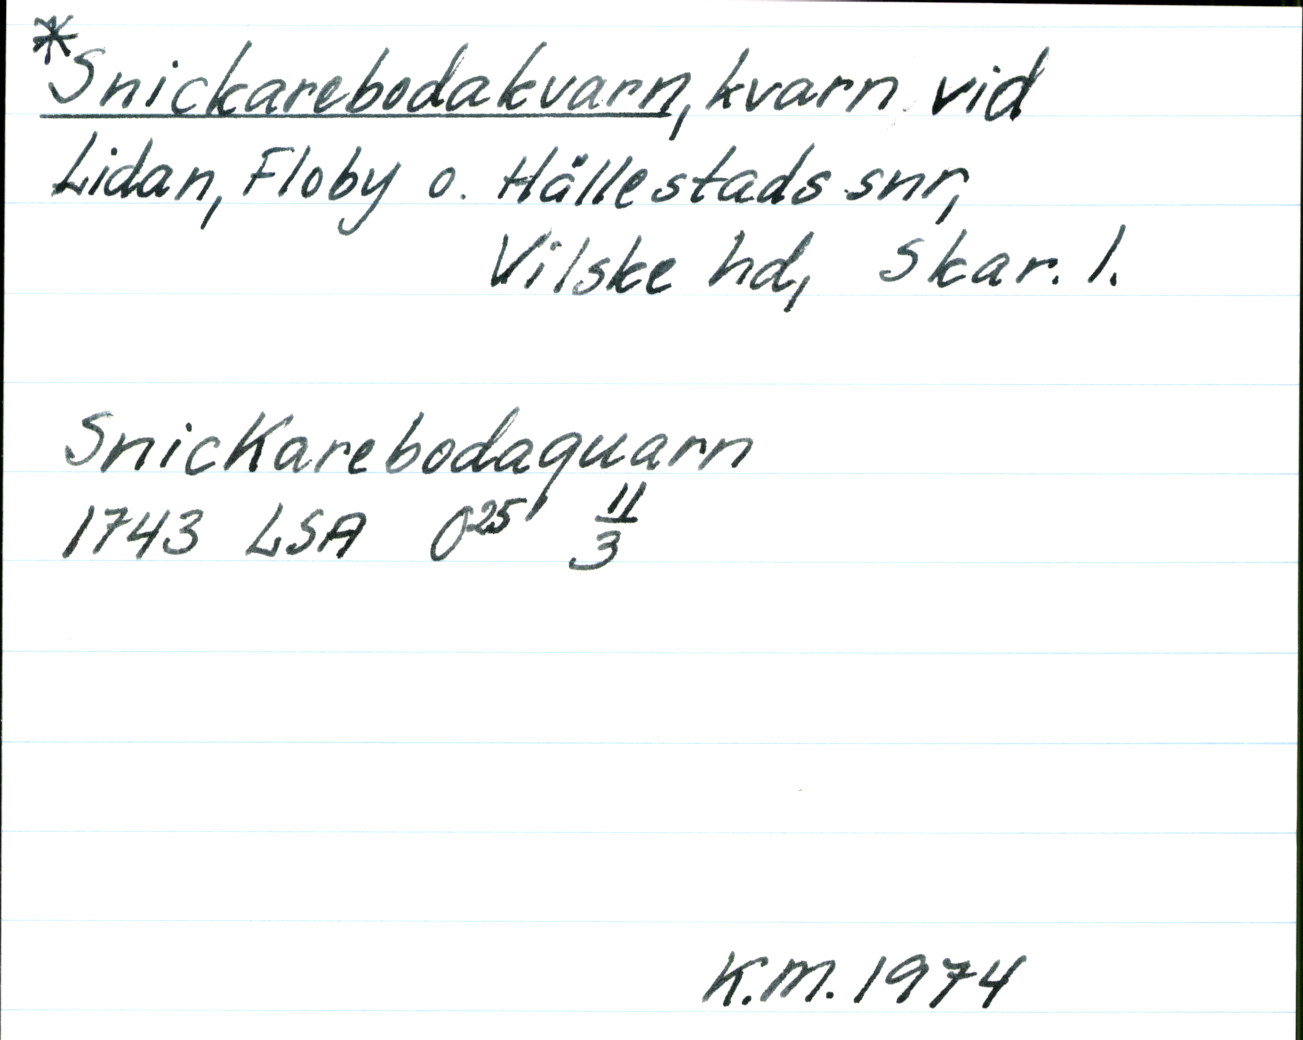 *Snickarebodakvarn, kvarn vid
Lidan, Floby o. Hällestads snr,
Vilske hd, Skar. l.
SnicKarebodaquarn
1743 LSA O25' 11/3
K.M. 1974